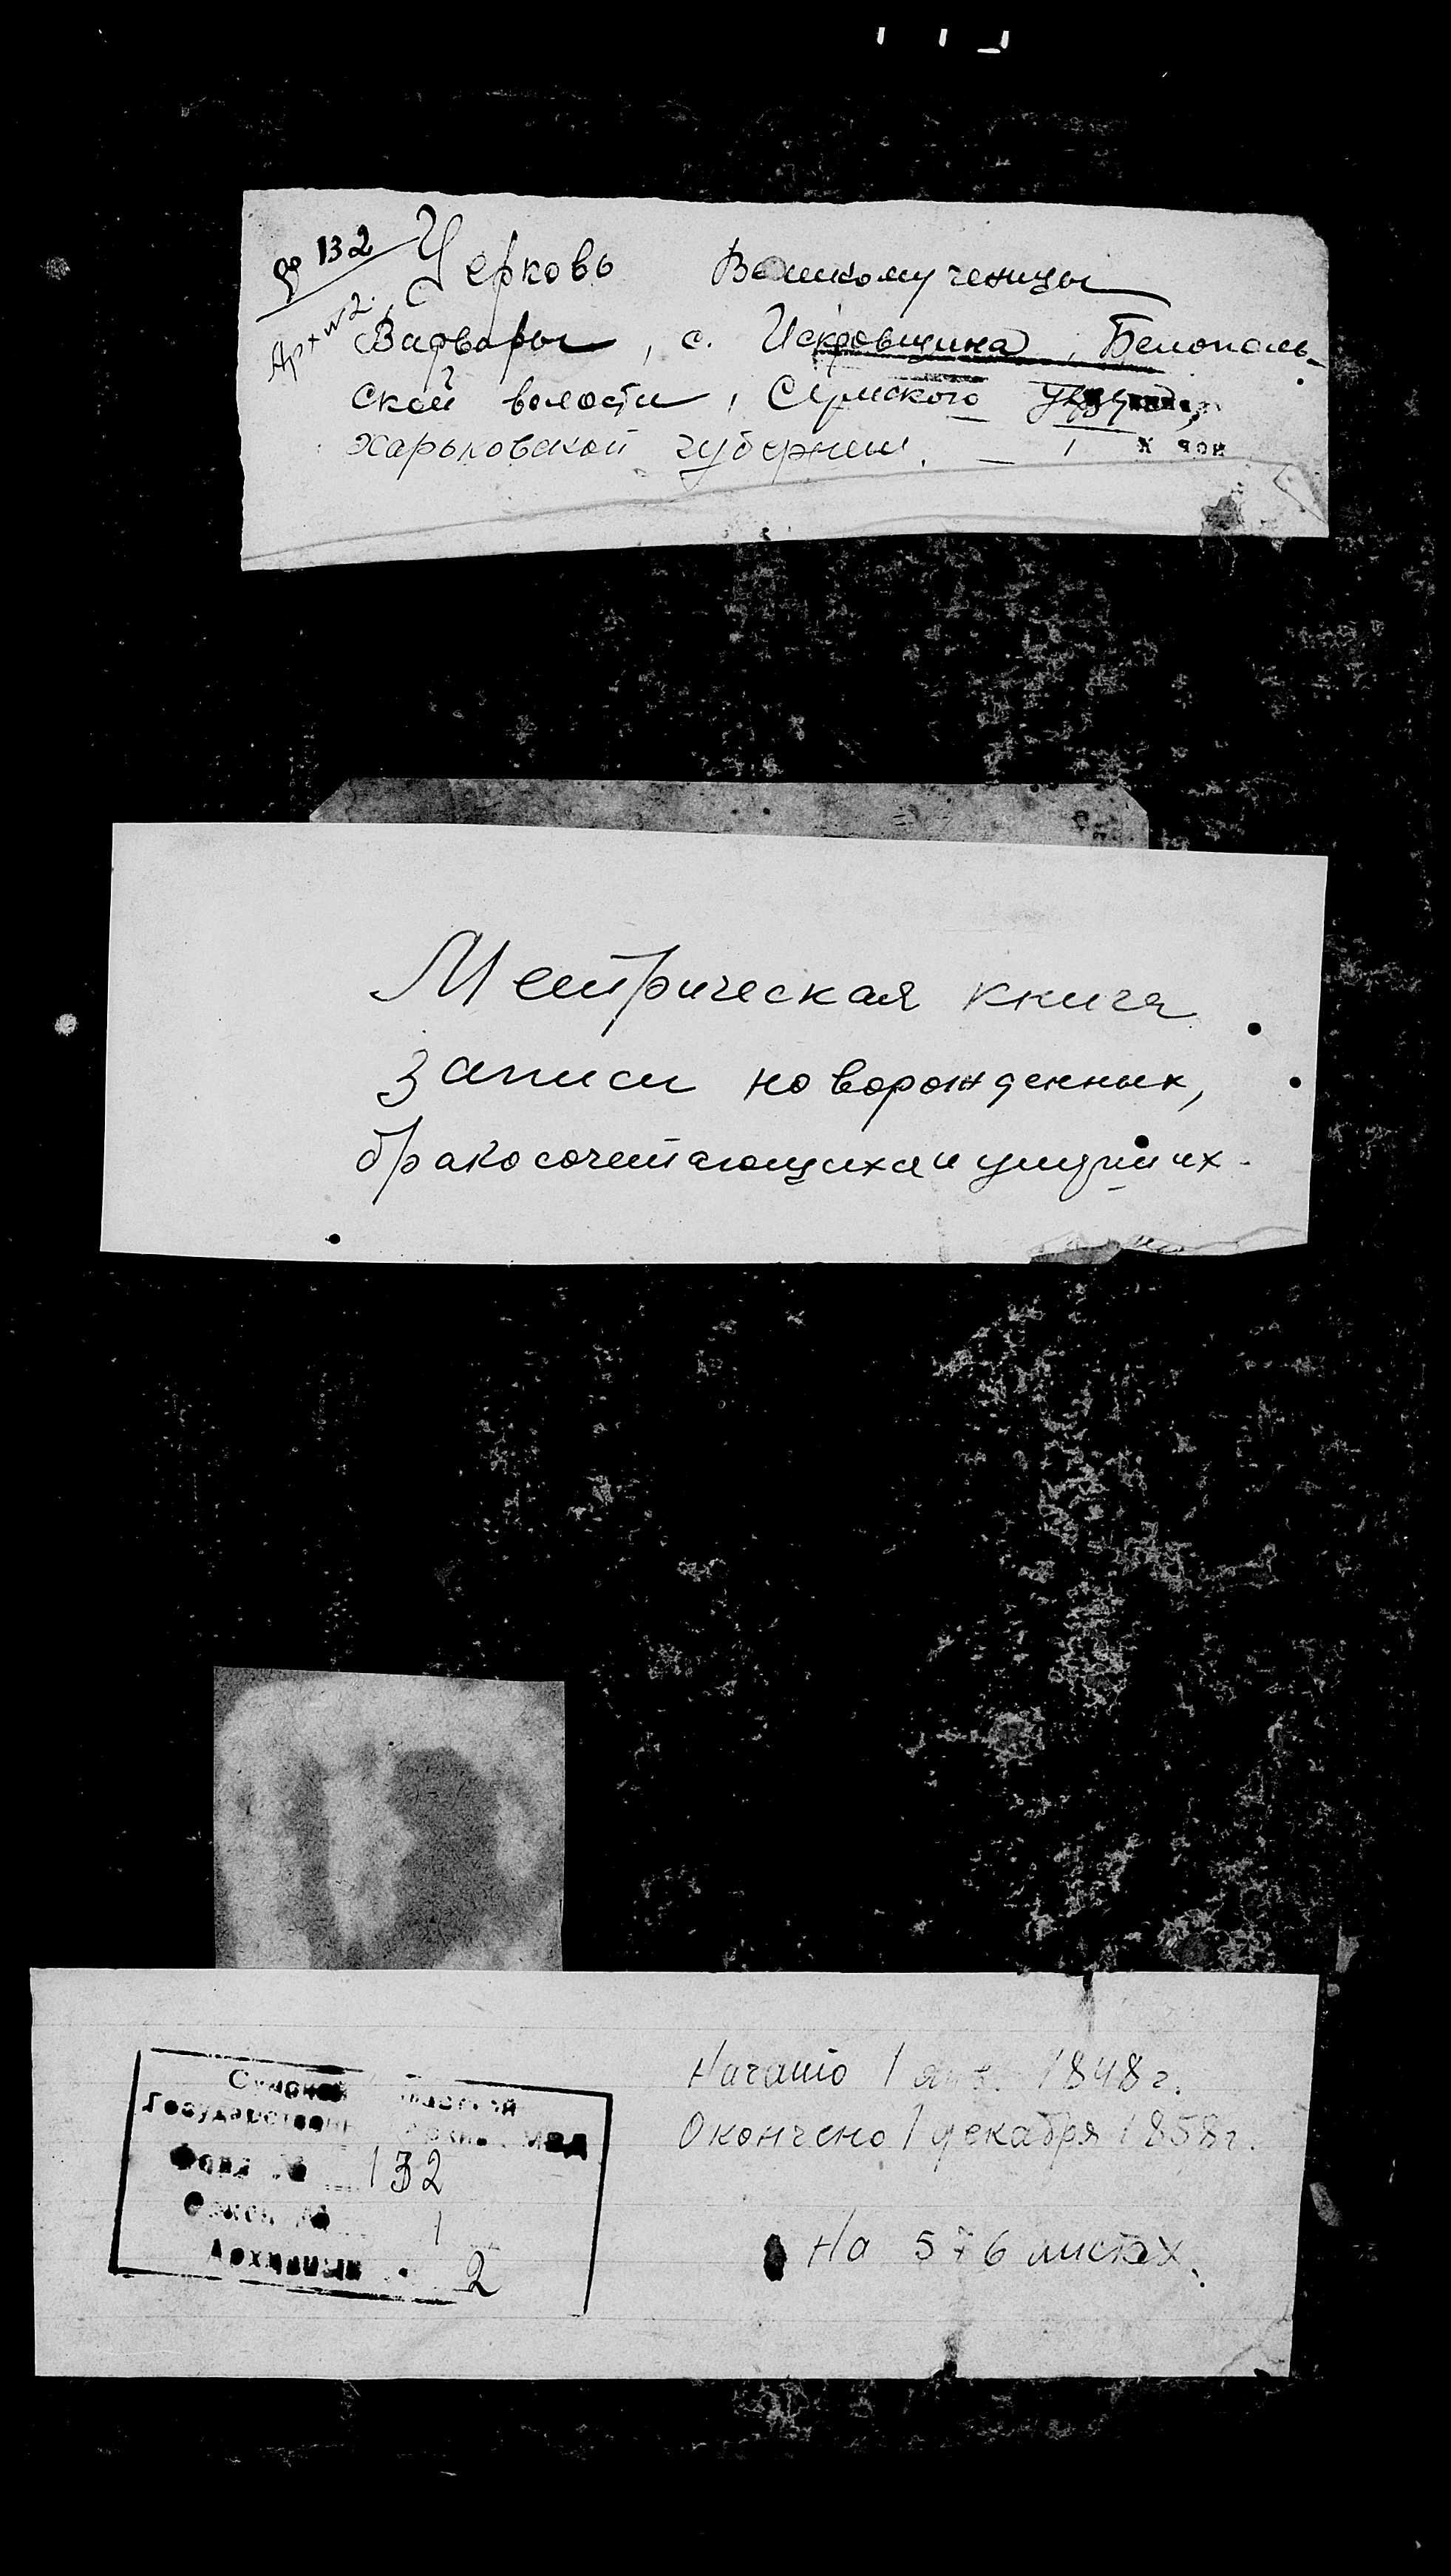 132
Арх №2.
Церковь Великомученицы
Варвары, с. Искровщина, Белополь-
ской волости, Сумского уезда,
Харьковской губернии.
Метрическая книга
записи новорожденных,
бракосочетающихся и умерших.
Начато 1 янв. 1848 г.
Окончено 1 декабря 1858 г.
На 576 листах.
Сумской областной
Государственный архив МВД
Фонд № 132
Опись № 1
Архивный 2